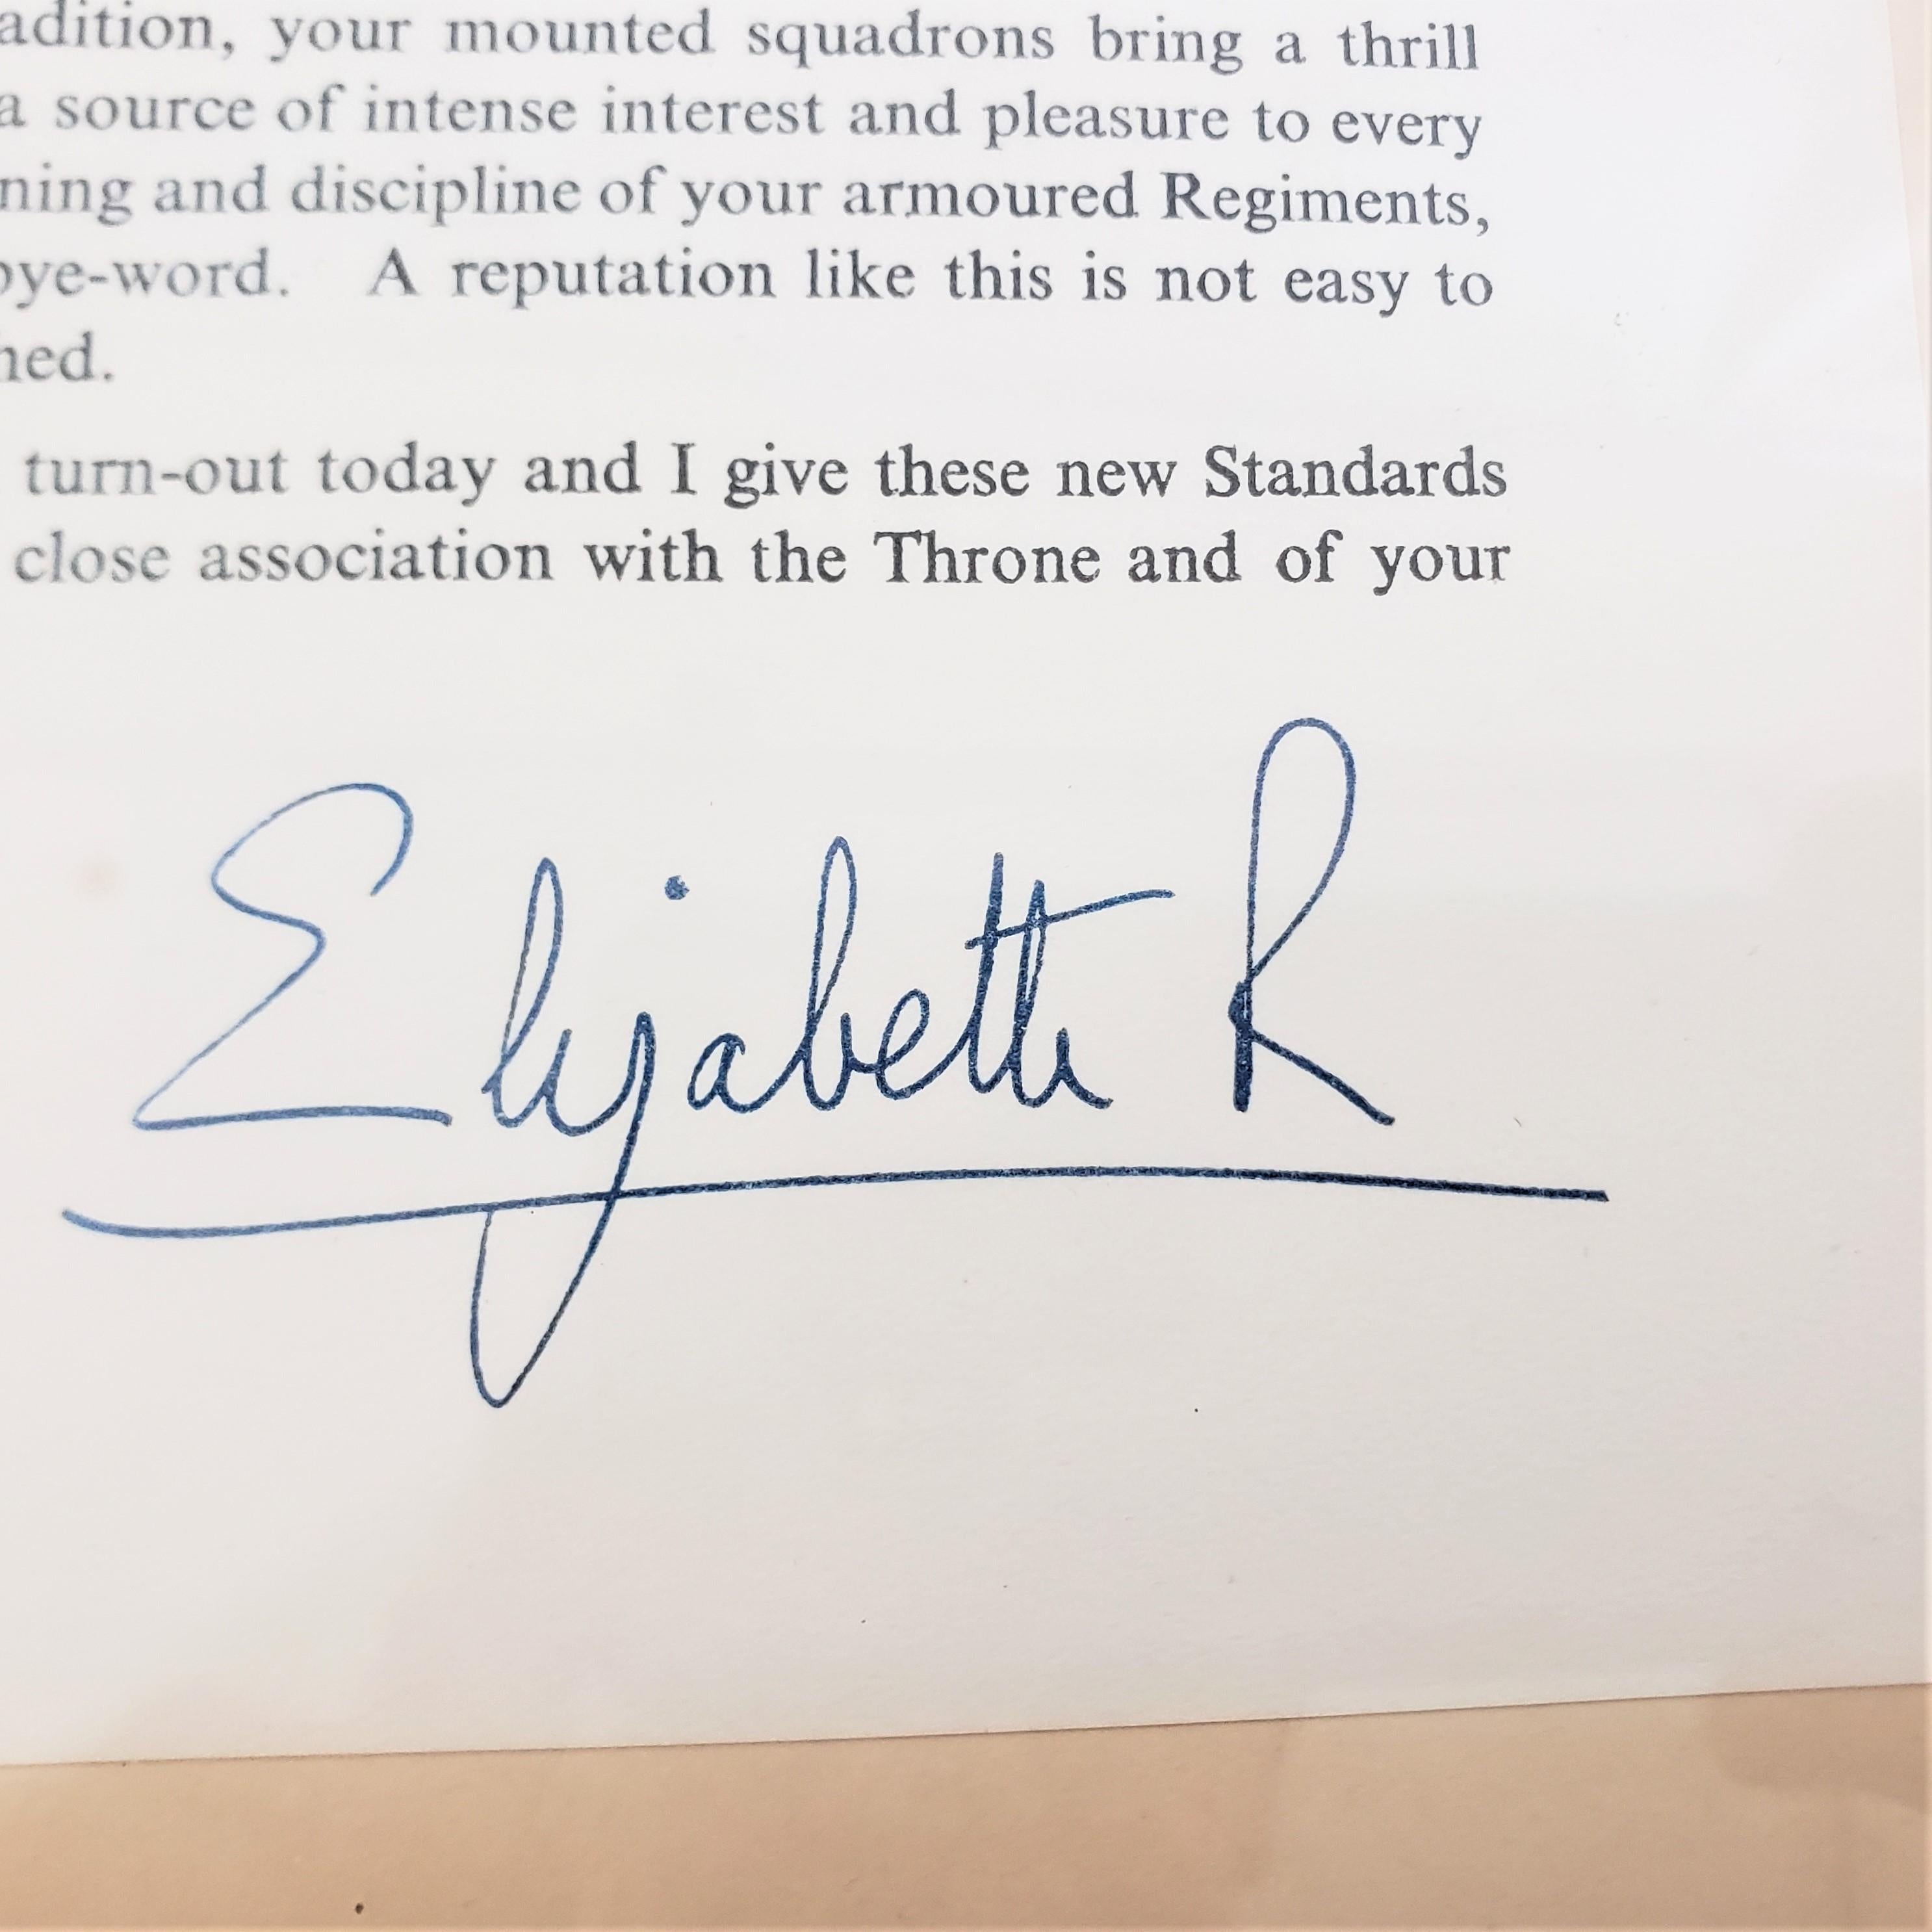 adition, your mounted squadrons bring a thrill
a source of intense interest and pleasure to every
ning and discipline of your armoured Regiments,
bye-word. A reputation like this is not easy to
hed.
turn-out today and I give these new Standards
close association with the Throne and of your
Elizabeth R